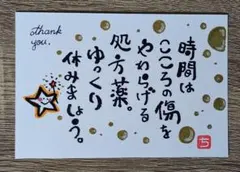 thank
you.
時間は
こころの傷を
やわらげる
処方薬。
ゆっくり
休みましょう。
ち